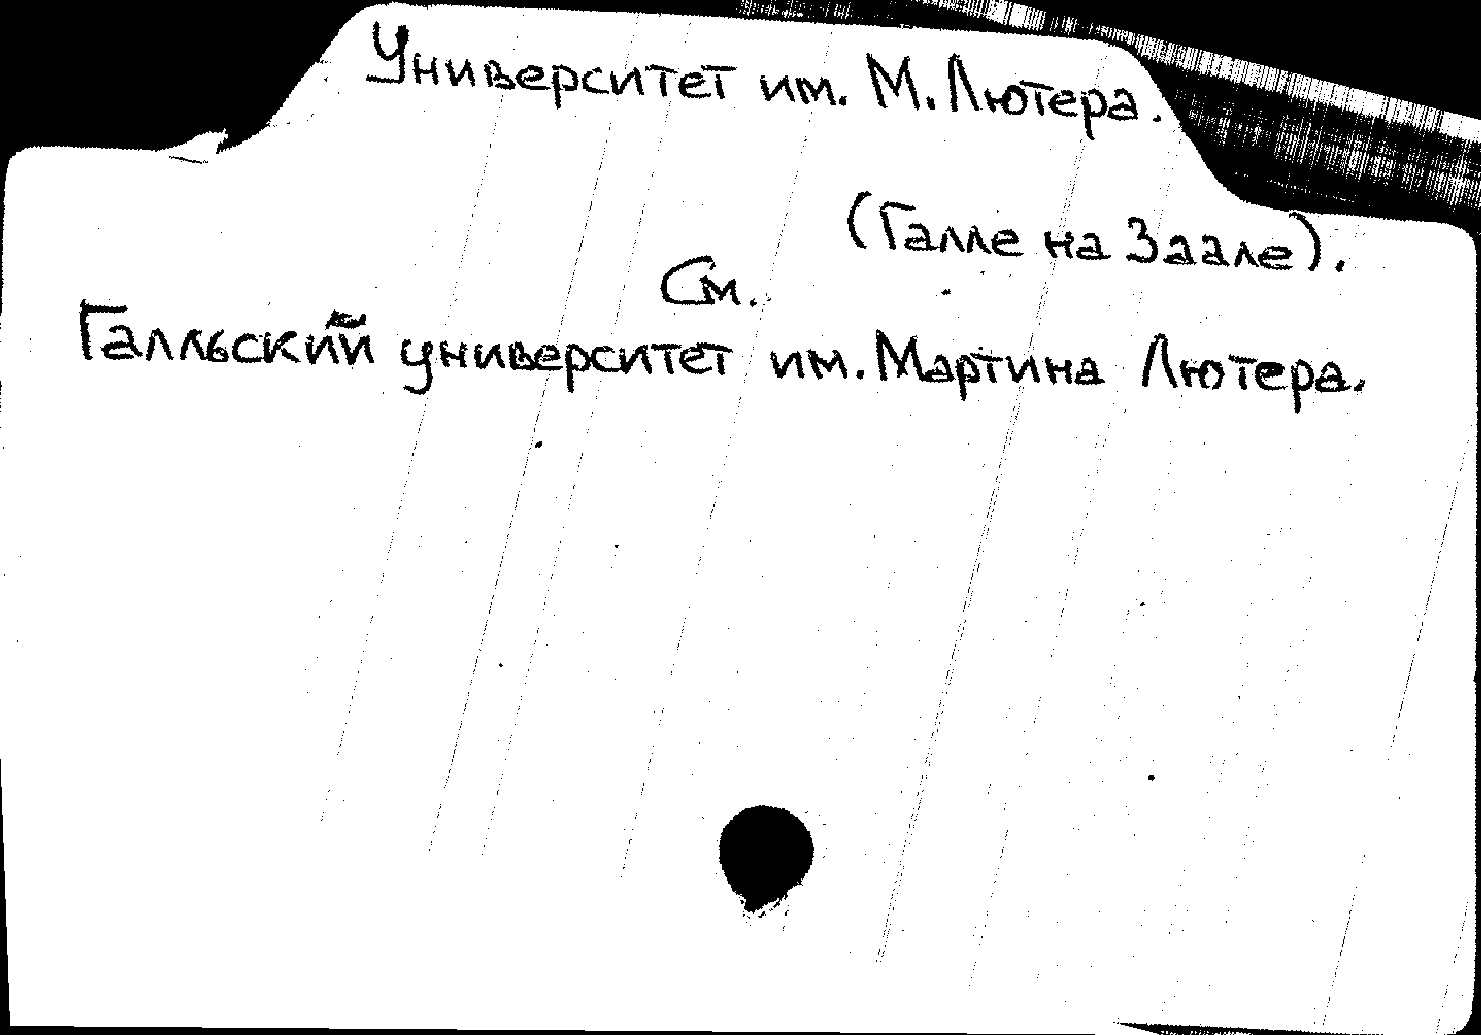 Университет им. М. Лютера.
(Галле на Заале).
См.
Галльский университет им. Мартина Лютера.